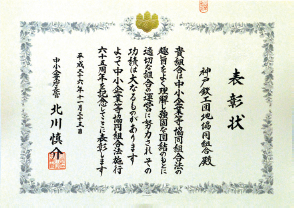 表彰状
神戸鉄工団地協同組合殿
貴組合は中小企業等協同組合法の
趣旨をよく理解し強固な団結のもとに
適切な組合の運営に努力されその
功績は大なるものがあります
よって中小企業等協同組合法施行
六十五周年を記念しここに表彰します
平成二十六年十一月二十五日
中小企業庁長官 北川慎介